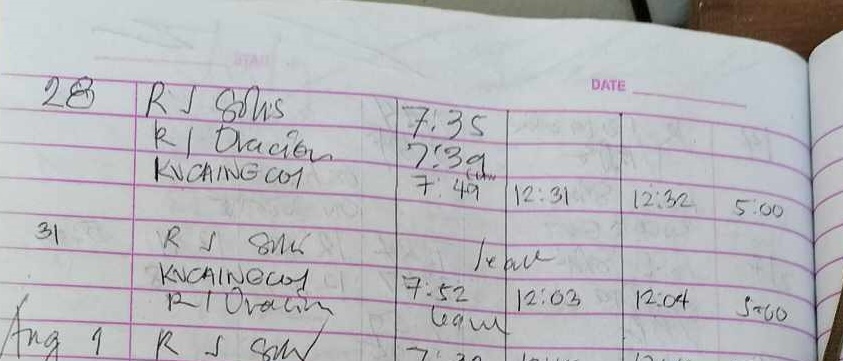 DATE
28 R J Solis 7:35
R I Oracion 7:39
KVCAINGCOY 7:49 12:31 12:32 5:00
31 R J Solis leave
KVCAINGCOY 7:52 12:03 12:04 5:00
R I Oracion leave
Aug 1 R J Solis